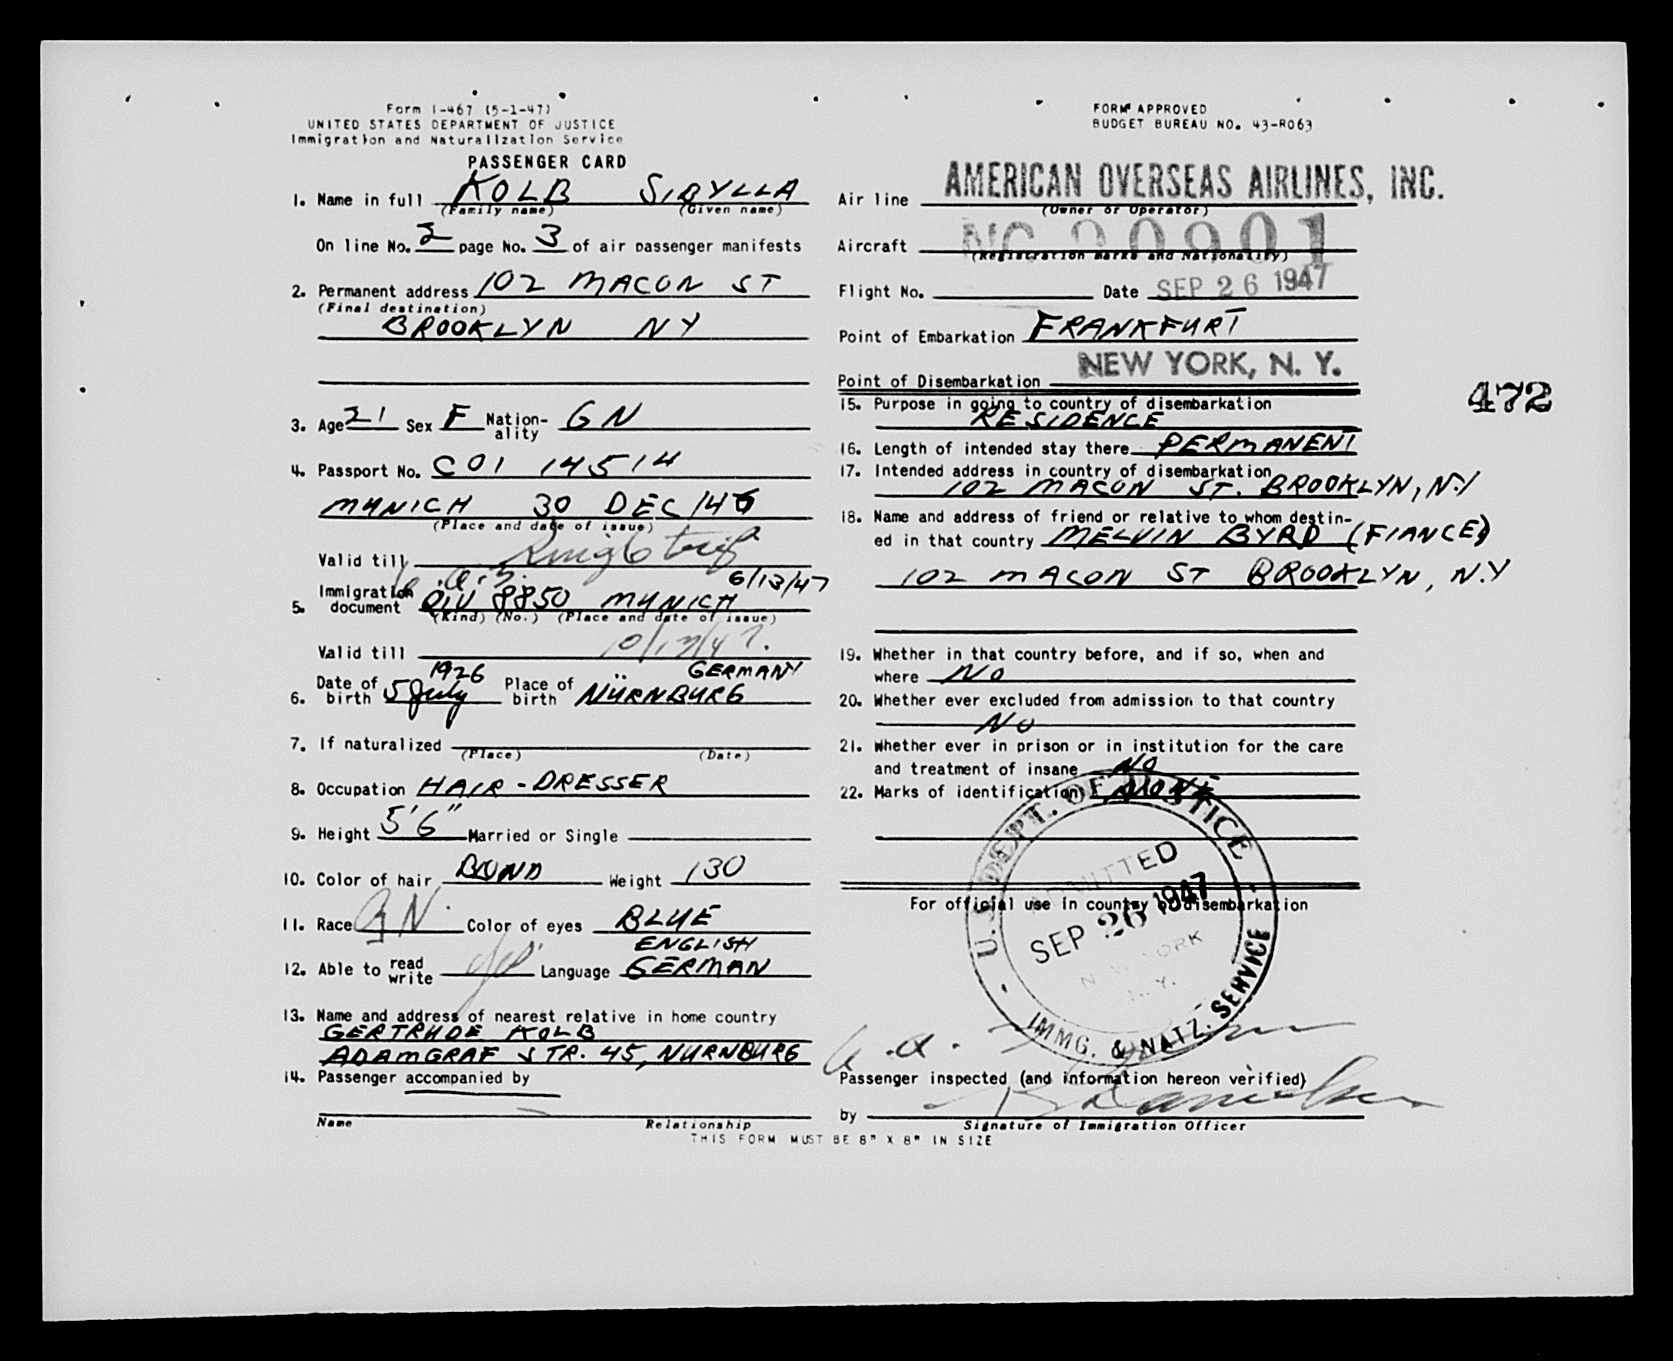 Form I-467 (5-1-47)
UNITED STATES DEPARTMENT OF JUSTICE
Immigration and Naturalization Service
PASSENGER CARD
1. Name in full KOLB SIBYLLA
(Family name) (Given name)
On line No. 2 page No. 3 of air passenger manifests
2. Permanent address 102 MACON ST
(Final destination)
BROOKLYN NY
3. Age 21 Sex F Nation-ality GN
4. Passport No. COI 14514
MUNICH 30 DEC 146
(Place and date of issue)
Valid till Single trip
6/13/47
5. Immigration document QIV 8850 MUNICH
(Kind) (No.) (Place and date of issue)
Valid till 10/13/47.
1926 GERMANY
6. Date of birth 5 July Place of birth NÜRNBURG
7. If naturalized
(Place) (Date)
8. Occupation HAIR-DRESSER
9. Height 5'6" Married or Single
10. Color of hair BOND Weight 130
11. Race GN. Color of eyes BLUE
ENGLISH
12. Able to read write yes Language GERMAN
13. Name and address of nearest relative in home country
GERTRUDE KOLB
ADAMGRAF STR. 45, NURNBURG
14. Passenger accompanied by
Name Relationship
FORM APPROVED
BUDGET BUREAU NO. 43-R063
Air line AMERICAN OVERSEAS AIRLINES, INC.
(Owner or Operator)
Aircraft NC 90901
(Registration marks and Nationality)
Flight No. Date SEP 26 1947
Point of Embarkation FRANKFURT
Point of Disembarkation NEW YORK, N. Y.
472
15. Purpose in going to country of disembarkation
RESIDENCE
16. Length of intended stay there PERMANENT
17. Intended address in country of disembarkation
102 MACON ST. BROOKLYN, N.Y
18. Name and address of friend or relative to whom destin-
ed in that country MELVIN BYRD (FIANCE)
102 MACON ST BROOKLYN, N.Y
19. Whether in that country before, and if so, when and
where NO
20. Whether ever excluded from admission to that country
NO
21. Whether ever in prison or in institution for the care
and treatment of insane NO
22. Marks of identification NONE
For official use in country of disembarkation
U.S. DEPT. OF JUSTICE
ADMITTED
SEP 26 1947
NEW YORK
N.Y.
IMMG. & NATZ. SERVICE
Passenger inspected (and information hereon verified)
by
Signature of Immigration Officer
THIS FORM MUST BE 8" X 8" IN SIZE